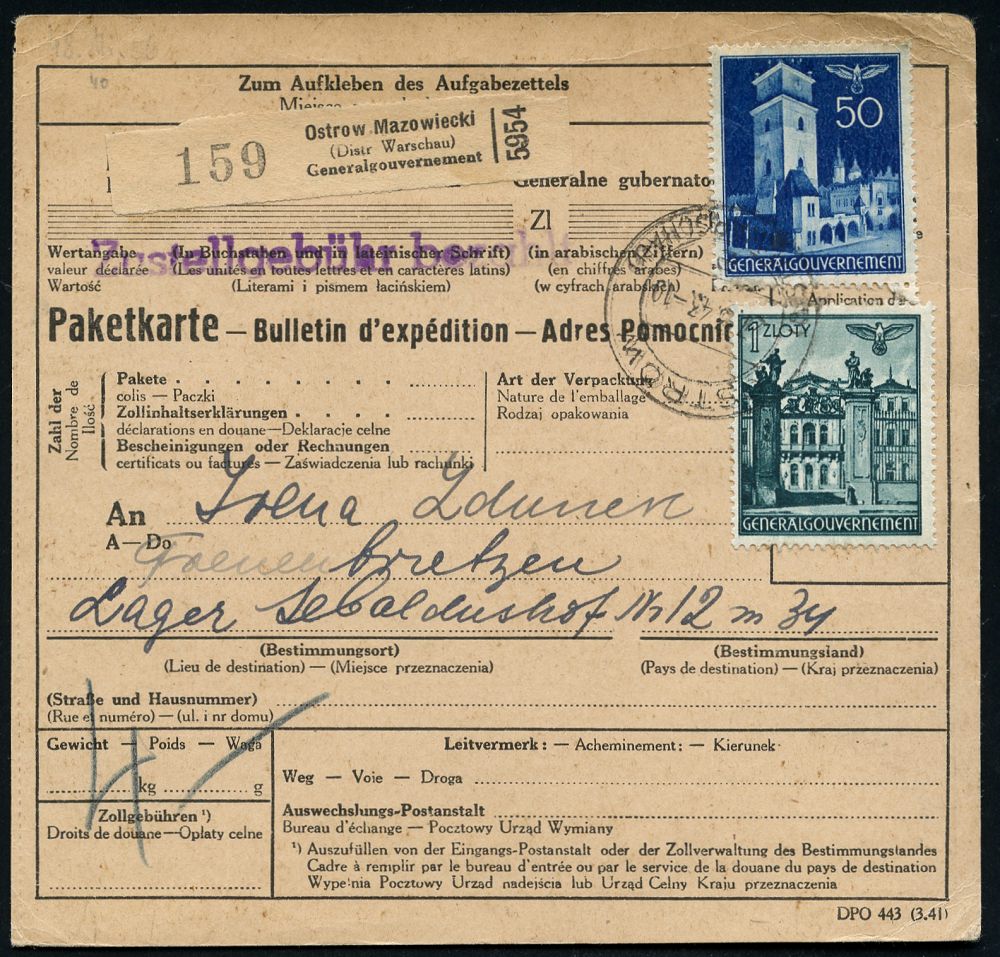 Zum Aufkleben des Aufgabezettels
159
Ostrow Mazowiecki
(Distr Warschau)
Generalgouvernement
5954
Generalne gubernato
Zl
Zustellgebühr
Wertangabe (In Buchstaben und in lateinischer Schrift) (in arabischen Ziffern)
valeur déclarée (Les unités en toutes lettres et en caractères latins) (en chiffres arabes)
Wartość (Literami i pismem łacińskiem) (w cyfrach arabskich)
50
GENERALGOUVERNEMENT
Application d
Paketkarte — Bulletin d'expédition — Adres Pomocnic
1 ZLOTY
GENERALGOUVERNEMENT
OSTROW
Zahl der
Nombre de
Ilość
Pakete
colis — Paczki
Zollinhaltserklärungen
déclarations en douane—Deklaracje celne
Bescheinigungen oder Rechnungen
certificats ou factures — Zaświadczenia lub rachunki
Art der Verpackung
Nature de l'emballage
Rodzaj opakowania
An Irena
A—Do
brietzen
Lager Sebaldushof Nr 12 m 34
(Bestimmungsort) (Bestimmungsland)
(Lieu de destination) — (Miejsce przeznaczenia) (Pays de destination) — (Kraj przeznaczenia)
(Straße und Hausnummer)
(Rue et numéro) — (ul. i nr domu)
Gewicht — Poids — Waga
kg g
4 —
Zollgebühren ¹)
Droits de douane—Opłaty celne
Leitvermerk: — Acheminement: — Kierunek
Weg — Voie — Droga
Auswechslungs-Postanstalt
Bureau d'échange — Pocztowy Urząd Wymiany
¹) Auszufüllen von der Eingangs-Postanstalt oder der Zollverwaltung des Bestimmungslandes
Cadre à remplir par le bureau d'entrée ou par le service de la douane du pays de destination
Wypełnia Pocztowy Urząd nadejścia lub Urząd Celny Kraju przeznaczenia
DPO 443 (3.41)